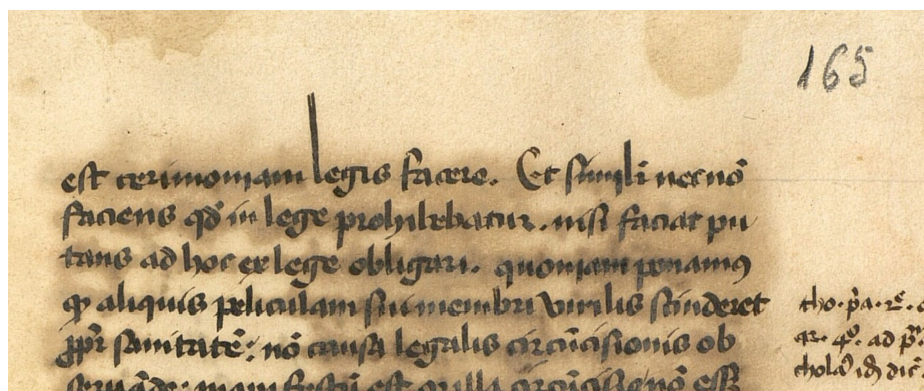 165
est cerimoniam legis facere. Et simili nec nō
faciens qd̓ in lege prohibebatur. nisi faciat pu
tans ad hoc ex lege obligari. quoniam ponamꝰ
ꝙ aliquis peliculam sui membri virilis scinderet
ꝓpr̄ sanitatē: nō causa legalis circūcisionis ob
seruādē: nam factū est
tho. p̄a.
qr. ad p̄.